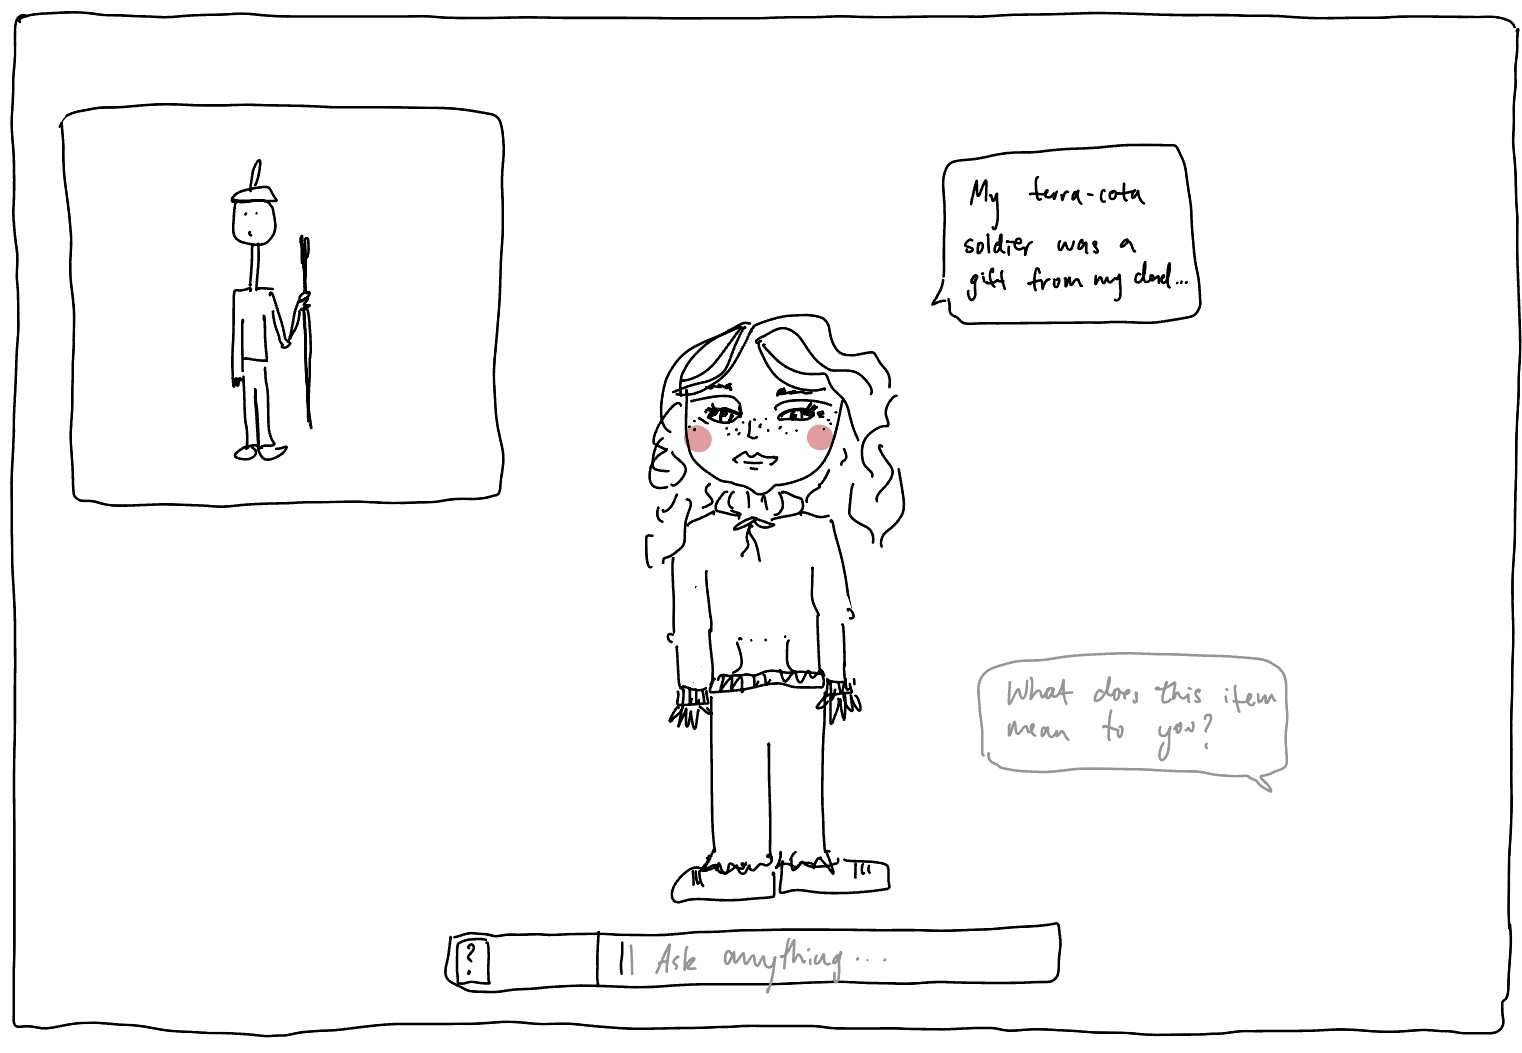 My terra-cota
soldier was a
gift from my dad...
What does this item
mean to you?
?
Ask anything...